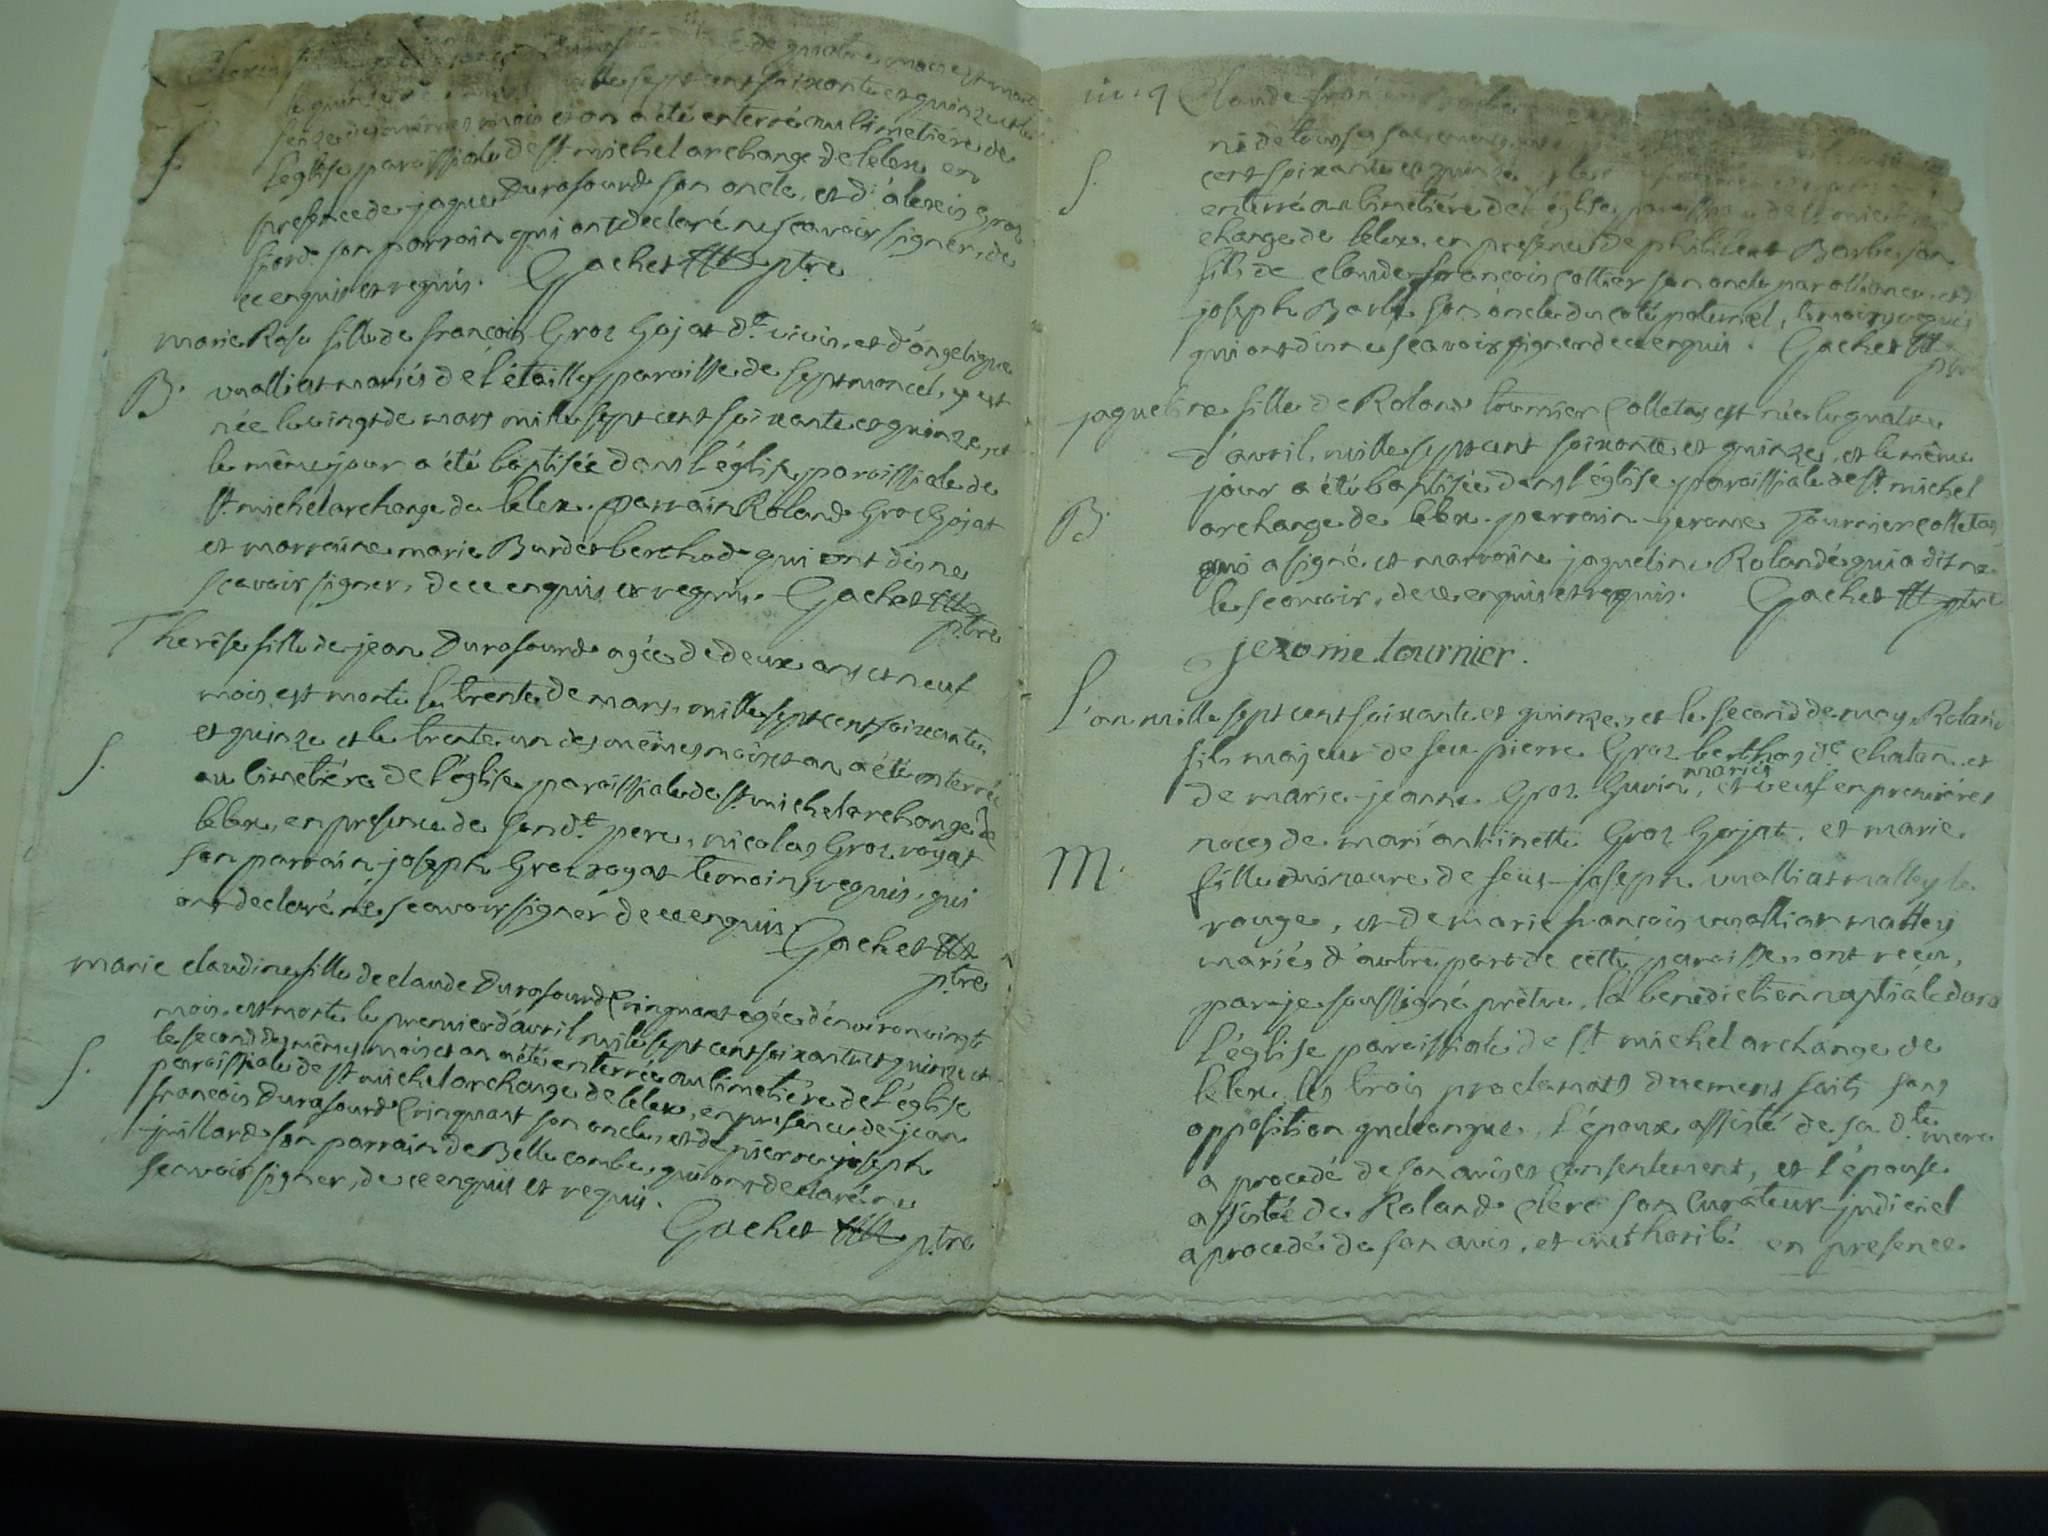 de quatre mois est mort
le quinze mille sept cent soixante et quinze et le
seize des mêmes mois et an a été enterré au cimetière de
l'église paroissiale de St. michel archange de lelex en
S.
presence de jaque Durafourd son oncle, et d'alexis Gros
fiord son parrain qui ont declaré ne scavoir signer, de
ce enquis et requis. Gachet ptre
marie Rose fille de françois Groz Gojat dt. vivin, et d'angelique
B. vualliat mariés de l'étailly paroisse de septmoncel, y est
née le vingt de mars mille sept cent soixante et quinze, et
le même jour a été baptisée dans l'église paroissiale de
St. michel archange de lelex. parrain Roland Groz Gojat
et marraine marie Burdet berthod qui ont dis ne
scavoir signer, de ce enquis et requis. Gachet
ptre
Therêse fille de jean Durafourd agée de deux ans et neuf
mois est morte le trente de mars mille sept cent soixante
et quinze et le trente un des mêmes mois et an a été enterrée
S. au cimetière de l'église paroissiale de St. michel archange de
lelex, en presence de son dt. pere, nicolas Groz royat
son parrain joseph Groz royat temoins requis, qui
ont declaré ne scavoir signér de ce enquis. Gachet
ptre
marie claudine fille de claude Durafourd Cringuant agée d'environ vingt
mois, est morte le premier d'avril mille sept cent soixante et quinze et
le second des mêmes mois et an a été enterrée au cimetière de l'église
S. paroissiale de St. michel archange de lelex, en presence de jean
françois Durafourd Cringuant son oncle, et de pierre joseph
juillard son parrain de Belle combe, qui ont declaré ne
scavoir signer, de ce enquis et requis.
Gachet ptre
Claude fran
ni de tous ses sacremens
S. cent soixante et quinze
enterré au cimetière de l'église paroissiale de St. michel ar
change de lelex, en presence de philibert Barbe son
fils de claude françois Collier son oncle par alliance, et de
joseph Barbe son oncle du coté paternel, temoins requis
qui ont dis ne scavoir signer de ce enquis. Gachet
ptre
jaqueline fille de Roland tournier Colletas est née le quatre
d'avril, mille sept cent soixante et quinze, et le même
jour a été baptisée dans l'église paroissiale de St. michel
B. archange de lelex. parrain jerome Tournier colletas
qui a signé et marraine jaqueline Rolandé qui a dit ne
le scavoir, de ce enquis et requis. Gachet ptre
jerome tournier.
L'an mille sept cent soixante et quinze, et le second de may, Roland
fils majeur de feu pierre Groz berthod de chatan, et
mariés
de marie jeanne Groz Guvin, et veuf en premières
noces de mari antinette Groz Gojat. et marie
M. fille mineure de feüs joseph vualliat mattey le
rouge, et de marie françois vualliat mattey
mariés d'autre part de cette paroisse, ont reçu,
par je soussigné prètre, la benediction nuptiale dans
l'église paroissiale de St. michel archange de
lelex, les trois proclamats duement faits sans
opposition quelconque. l'époux assisté de sa dte. mere
a procedé de son avis et consentement, et l'épouse
assistée de Roland Clerc son Curateur judiciel
a procedé de son avis, et authorité en presence